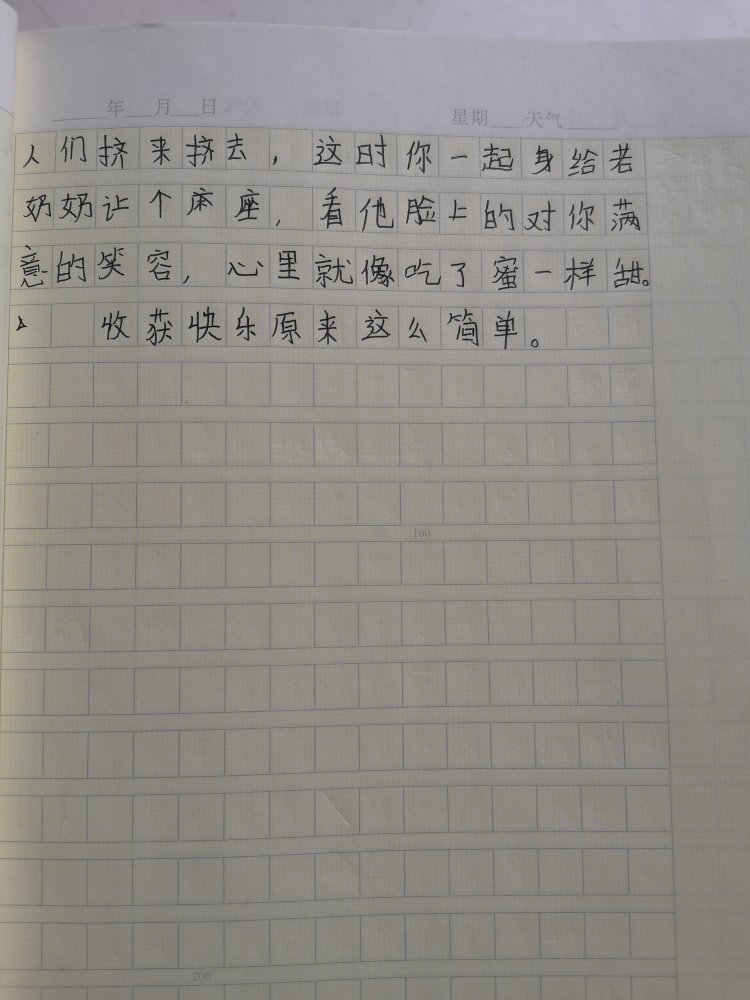 年 月 日 星期 天气
人们挤来挤去，这时你一起身给若
奶奶让个床座，看他脸上的对你满
意的笑容，心里就像吃了蜜一样甜。
收获快乐原来这么简单。
100
200